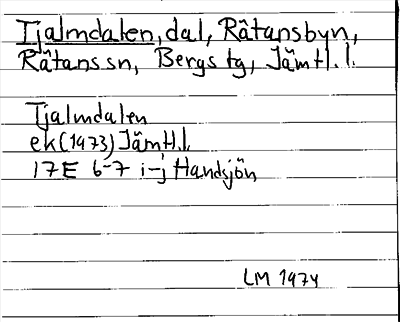 Tjalmdalen, dal, Råtansbyn,
Råtans sn, Bergs tg, Jämtl. l.
Tjalmdalen
ek (1973) Jämtl.l.
17E 6-7 i-j Handsjön
LM 1974